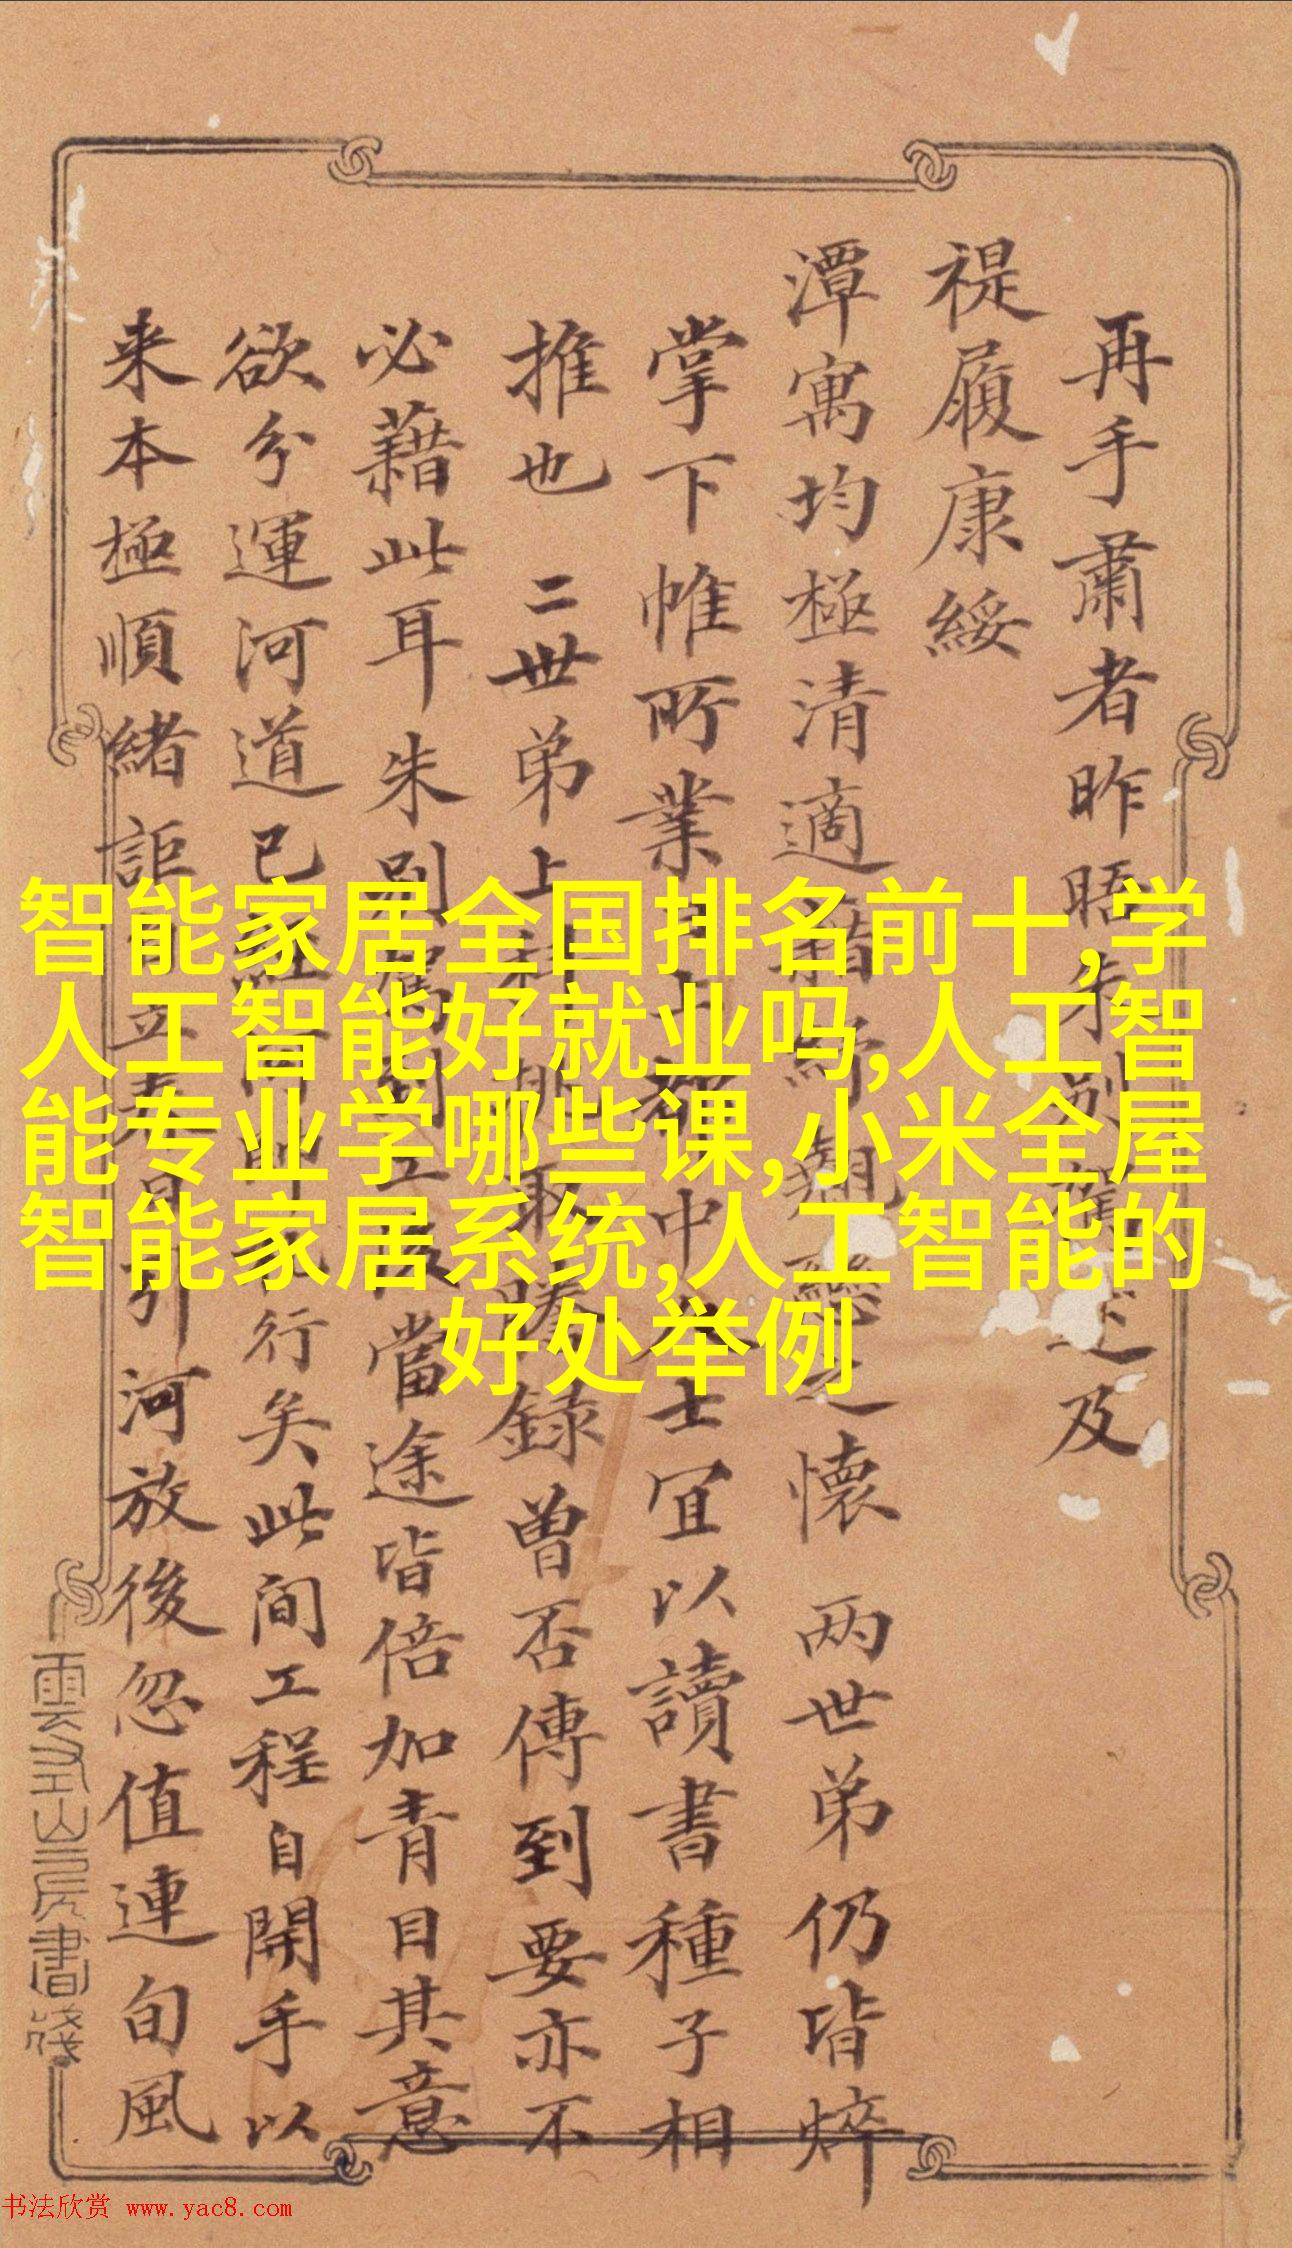 再手肅者昨晤朱別駕述及
禔履康綏
潭寓均極清適藉紓翹戀之懷 两世弟仍皆焠
掌下帷所業日上都中人士宜以讀書種子相
推也 二世弟上科挑取謄錄曾否傳到要亦不
必藉此耳朱別駕到工後當途皆倍加青目其意
欲分運河道已
行矣此间工程自開手以
来本極順緒詎
引河放後忽值連旬風
雲
山房書箋
智能家居全国排名前十,学
人工智能好就业吗,人工智
能专业学哪些课,小米全屋
智能家居系统,人工智能的
好处举例
书法欣赏 www.yac8.com